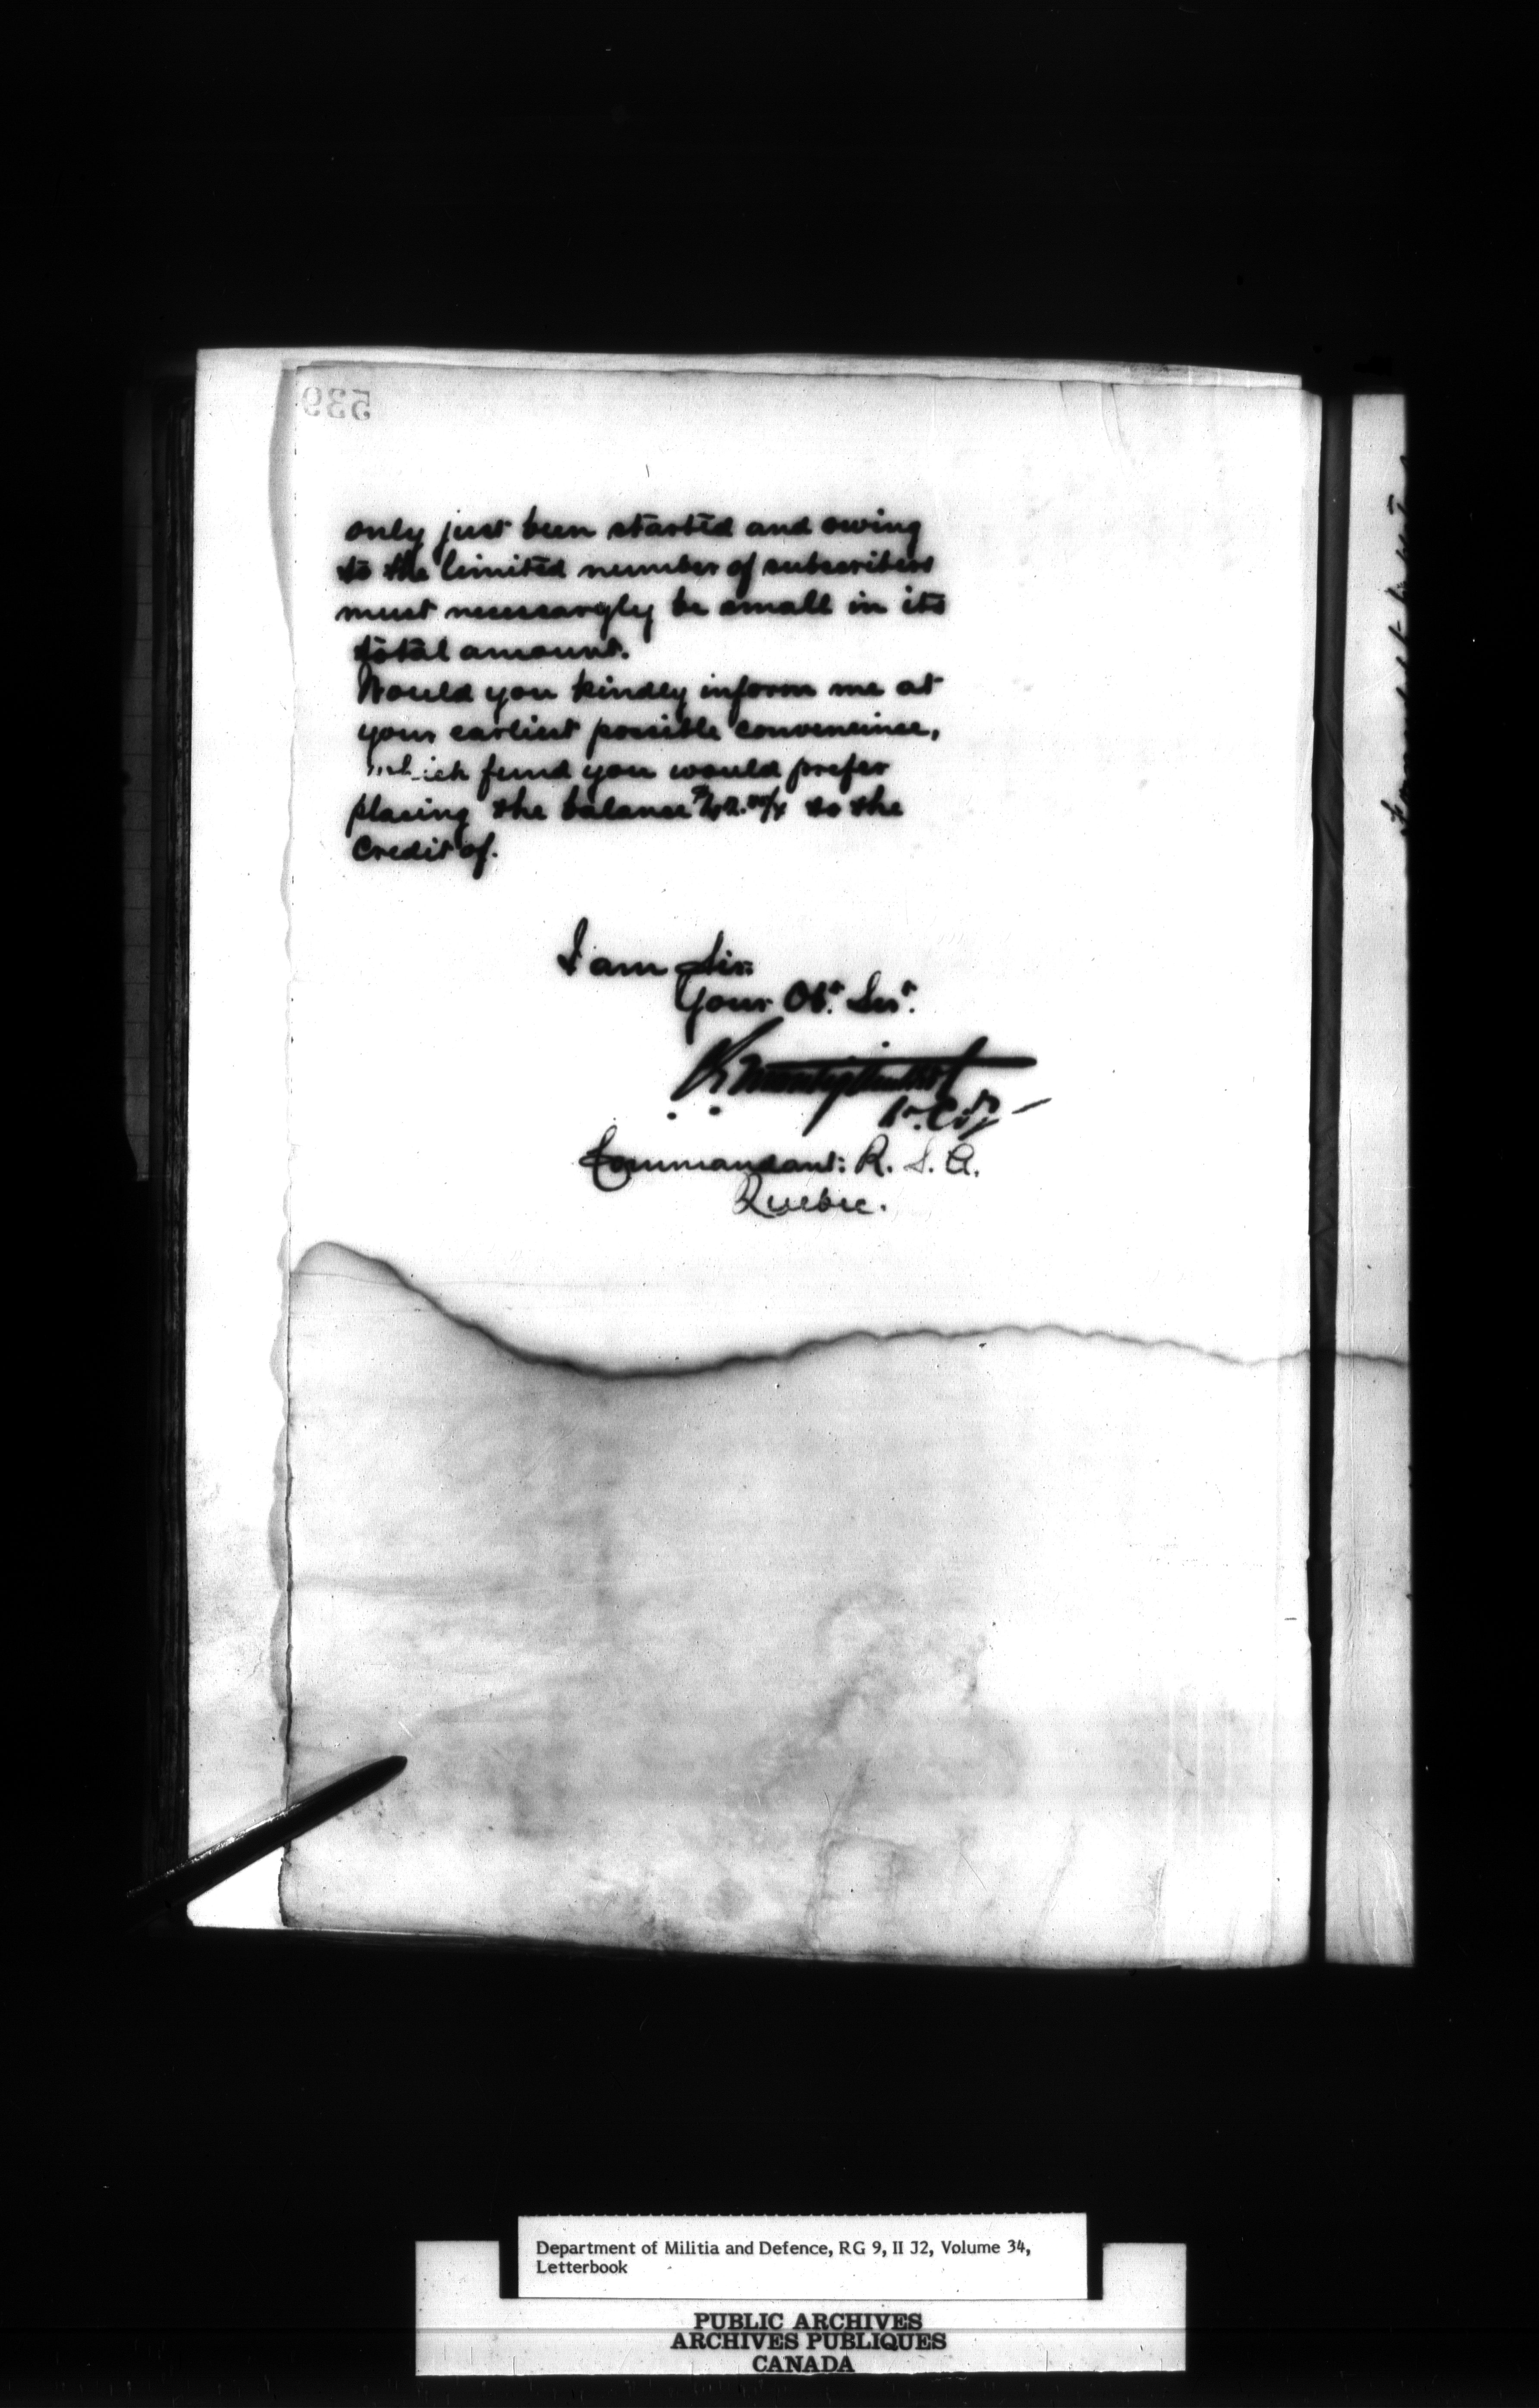 539
only just been started and owing
to the limited number of subscribers
must necessargly be small in its
total amount.
Would you kindly inform me at
your earliest possible conveneince,
which fund you would prefer
placing the balance to the
Credit of.
I am Sir.
Your Obt. Sert.
Commandant: R. S. A.
Quebec.
Department of Militia and Defence, RG 9, II J2, Volume 34,
Letterbook
PUBLIC ARCHIVES
ARCHIVES PUBLIQUES
CANADA